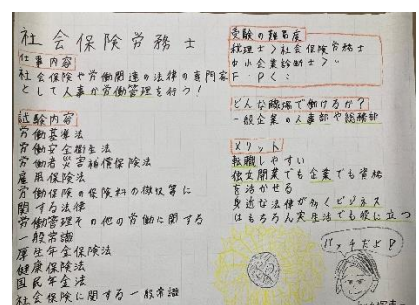 社会保険労務士
仕事内容
社会保険や労働関連の法律の専門家
として人事か労働管理を行う！
試験内容
労働基準法
労働安全衛生法
労働者災害補償保険法
雇用保険法
労働保険の保険料の徴収等に
関する法律
労働管理その他の労働に関する
一般常識
厚生年金保険法
健康保険法
国民年金法
社会保険に関する一般常識
受験の難易度
税理士＞社会保険労務士
中小企業診断士＞〃
F・P＜
どんな職場で働けるか？
一般企業の人事部や総務部
メリット
転職しやすい
独立開業でも企業でも資格
を活かせる
身近な法律が多くビジネス
はもちろん実生活でも役に立つ
バッチだよ